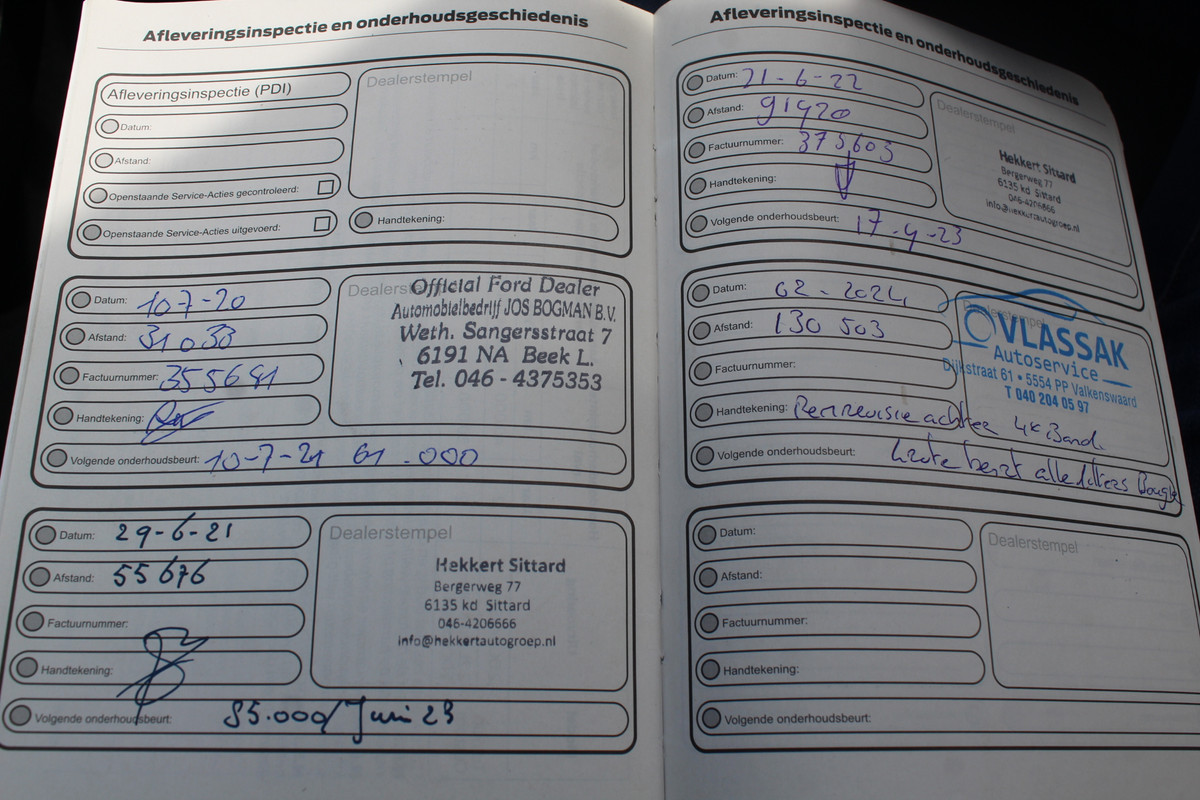 Afleveringsinspectie en onderhoudsgeschiedenis
Afleveringsinspectie (PDI)
Datum:
Afstand:
Openstaande Service-Acties gecontroleerd:
Openstaande Service-Acties uitgevoerd:
Dealerstempel
Handtekening:
Datum: 10-7-20
Afstand: 31033
Factuurnummer: 355681
Handtekening:
Volgende onderhoudsbeurt: 10-7-21 61.000
Dealerstempel
Official Ford Dealer
Automobielbedrijf JOS BOGMAN B.V.
Weth. Sangersstraat 7
6191 NA Beek L.
Tel. 046 - 4375353
Datum: 29-6-21
Afstand: 55676
Factuurnummer:
Handtekening:
Volgende onderhoudsbeurt: 85.000/Juni 23
Dealerstempel
Hekkert Sittard
Bergerweg 77
6135 kd Sittard
046-4206666
info@hekkertautogroep.nl
Afleveringsinspectie en onderhoudsgeschiedenis
Datum: 21-6-22
Afstand: 91920
Factuurnummer: 375603
Handtekening:
Volgende onderhoudsbeurt: 17-4-23
Dealerstempel
Hekkert Sittard
Bergerweg 77
6135 kd Sittard
046-4206666
info@hekkertautogroep.nl
Datum: 02-2024
Afstand: 130 503
Factuurnummer:
Handtekening: Remrevisie achter 4x Band.
Volgende onderhoudsbeurt: Grote beurt alle filters
Dealerstempel
VLASSAK
Autoservice
Dijkstraat 61 • 5554 PP Valkenswaard
T 040 204 05 97
Datum:
Afstand:
Factuurnummer:
Handtekening:
Volgende onderhoudsbeurt:
Dealerstempel